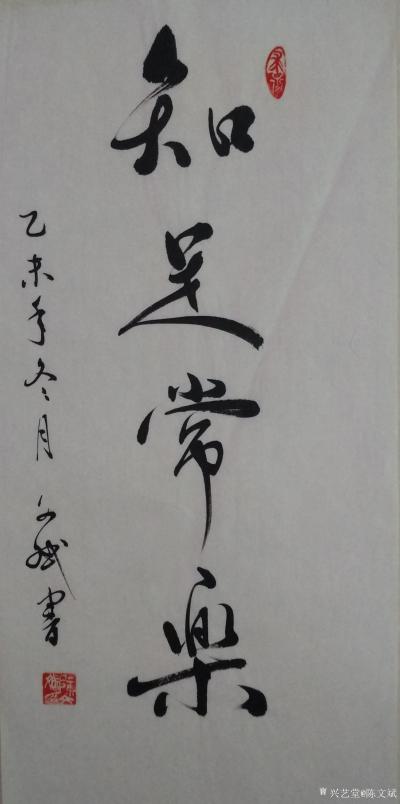 知足常樂
乙未年冬月文斌書
兴艺堂@陈文斌